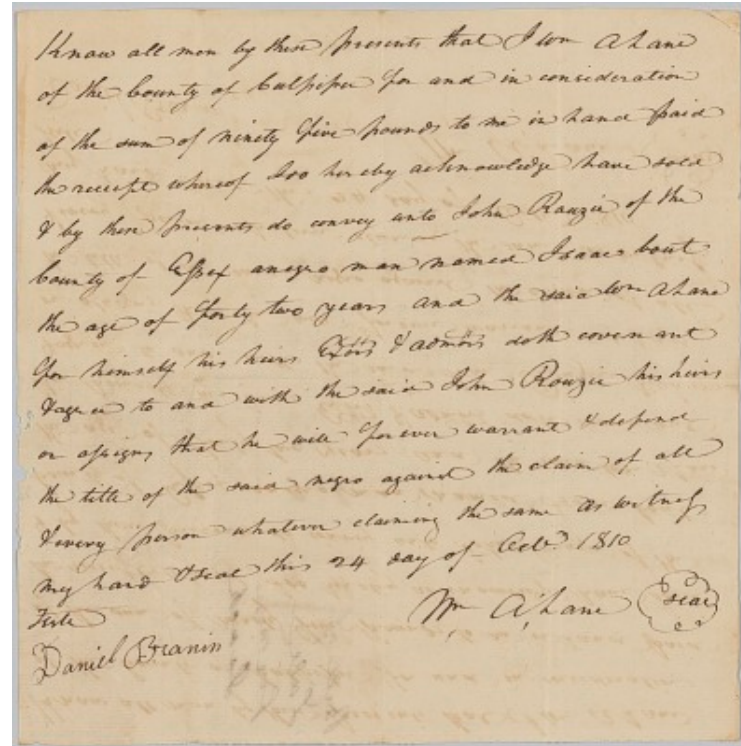 Know all men by these presents that I Wm A Lane
of the County of Culpiper for and in consideration
of the sum of ninety five pounds to me in hand paid
the receipt whereof I do hereby acknowledge have sold
& by these presents do convey unto John Rouzie of the
County of Essex a negro man named Isaac bout
the age of forty two years and the said Wm A Lane
for himself his heirs Exors & admors doth covenant
& agree to and with the said John Rouzie his heirs
or assigns that he will forever warrant & defend
the title of the said negro against the claim of all
& every person whatever claiming the same as witness
my hand & seal this 24 day of Octbr 1810
Teste
Wm A Lane seal
Daniel Branin